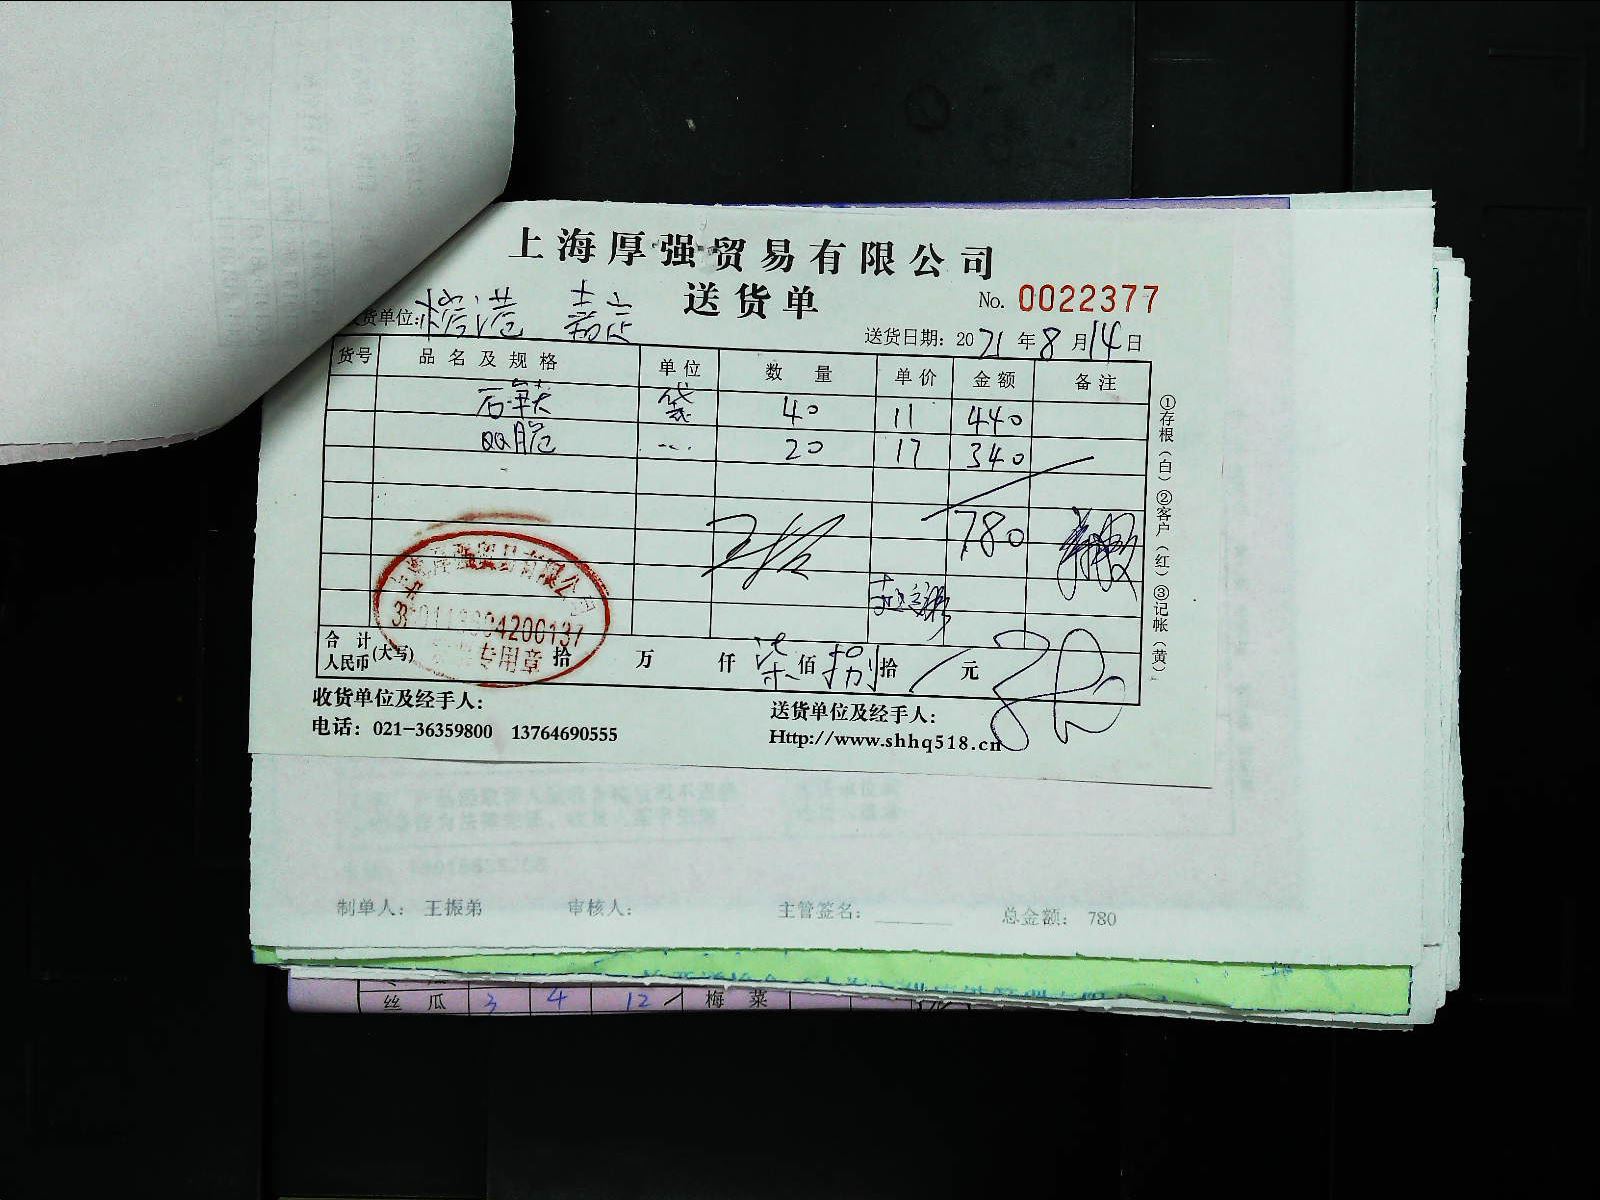 上海厚强贸易有限公司
送货单
No. 0022377
货单位:
嘉定
送货日期: 2021年8月14日
货号 品名及规格 单位 数量 单价 金额 备注
袋 40 11 440
QQ脆 20 17 340
780
上海厚强贸易有限公司
专用章
合计人民币(大写) 拾 万 仟 柒佰捌拾 元
收货单位及经手人:
送货单位及经手人:
电话: 021-36359800 13764690555
Http://www.shhq518.cn
①存根(白)②客户(红)③记帐(黄)
制单人: 王振弟 审核人: 主管签名: 总金额: 780
丝瓜 3 4 12 梅菜